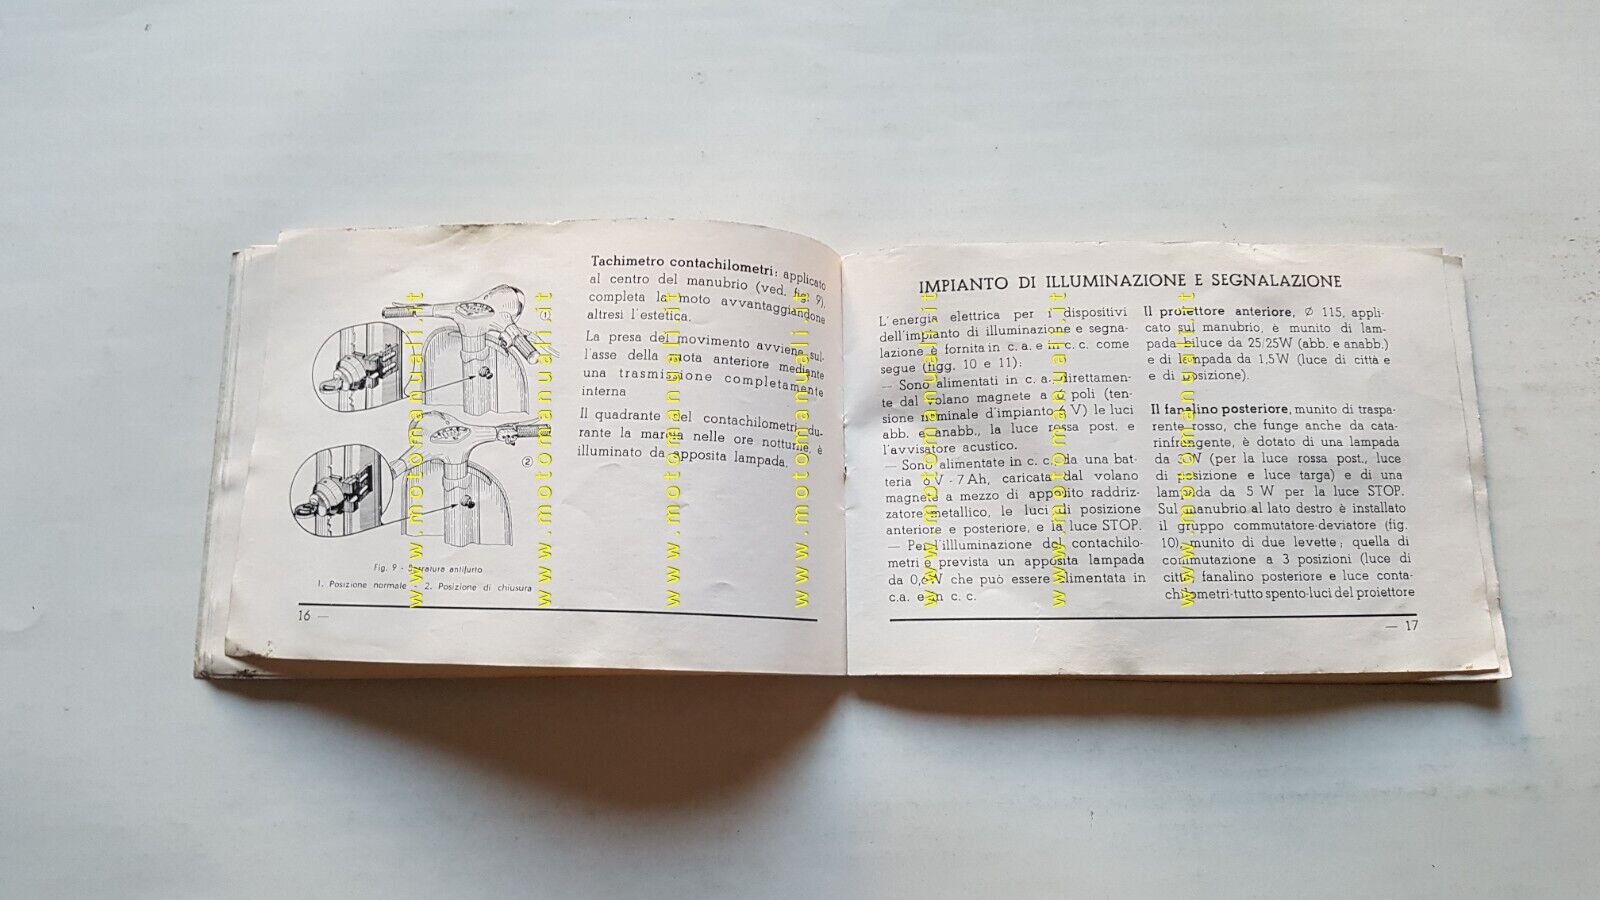 ①
②
Fig. 9 - Serratura antifurto
1. Posizione normale - 2. Posizione di chiusura
Tachimetro contachilometri: applicato
al centro del manubrio (ved. fig. 9),
completa la moto avvantaggiandone
altresì l'estetica.
La presa del movimento avviene sul-
l'asse della ruota anteriore mediante
una trasmissione completamente
interna
Il quadrante del contachilometri, du-
rante la marcia nelle ore notturne, è
illuminato da apposita lampada.
16 —
IMPIANTO DI ILLUMINAZIONE E SEGNALAZIONE
L'energia elettrica per i dispositivi
dell'impianto di illuminazione e segna-
lazione è fornita in c. a. e in c. c. come
segue (figg. 10 e 11):
— Sono alimentati in c. a. direttamen-
te dal volano magnete a 6 poli (ten-
sione nominale d'impianto 6 V) le luci
abb. e anabb., la luce rossa post. e
l'avvisatore acustico.
— Sono alimentate in c. c. da una bat-
teria 6 V - 7 Ah, caricata dal volano
magnete a mezzo di apposito raddriz-
zatore metallico, le luci di posizione
anteriore e posteriore, e la luce STOP.
— Per l'illluminazione del contachilo-
metri è prevista un apposita lampada
da 0,6 W che può essere alimentata in
c.a. e in c. c.
Il proiettore anteriore, ∅ 115, appli-
cato sul manubrio, è munito di lam-
pada biluce da 25/25W (abb. e anabb.)
e di lampada da 1,5W (luce di città e
e di posizione).
Il fanalino posteriore, munito di traspa-
rente rosso, che funge anche da cata-
rinfrangente, è dotato di una lampada
da 3 W (per la luce rossa post., luce
di posizione e luce targa) e di una
lampada da 5 W per la luce STOP.
Sul manubrio al lato destro è installato
il gruppo commutatore-deviatore (fig.
10), munito di due levette; quella di
commutazione a 3 posizioni (luce di
città, fanalino posteriore e luce conta-
chilometri-tutto spento-luci del proiettore
— 17
www.motomanuali.it
www.motomanuali.it
www.motomanuali.it
www.motomanuali.it
www.motomanuali.it
www.motomanuali.it
www.motomanuali.it